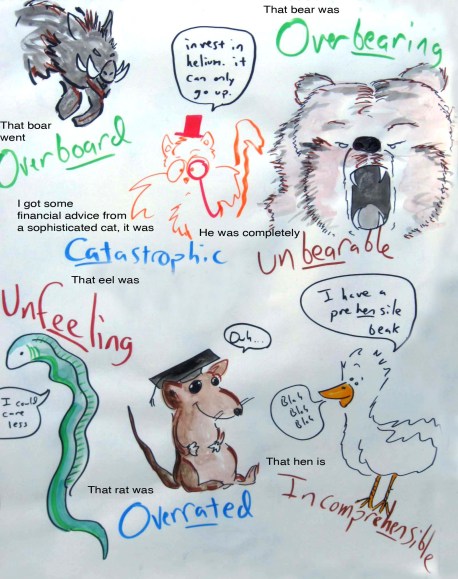 That bear was
Overbearing
invest in
helium. it
can only
go up.
That boar
went
Overboard
I got some
financial advice from
a sophisticated cat, it was
Catastrophic
He was completely
unbearable
That eel was
Unfeeling
I could
care
less
Duh...
That rat was
Overrated
I have a
prehensile
beak
Blah
Blah
Blah
That hen is
Incomprehensible